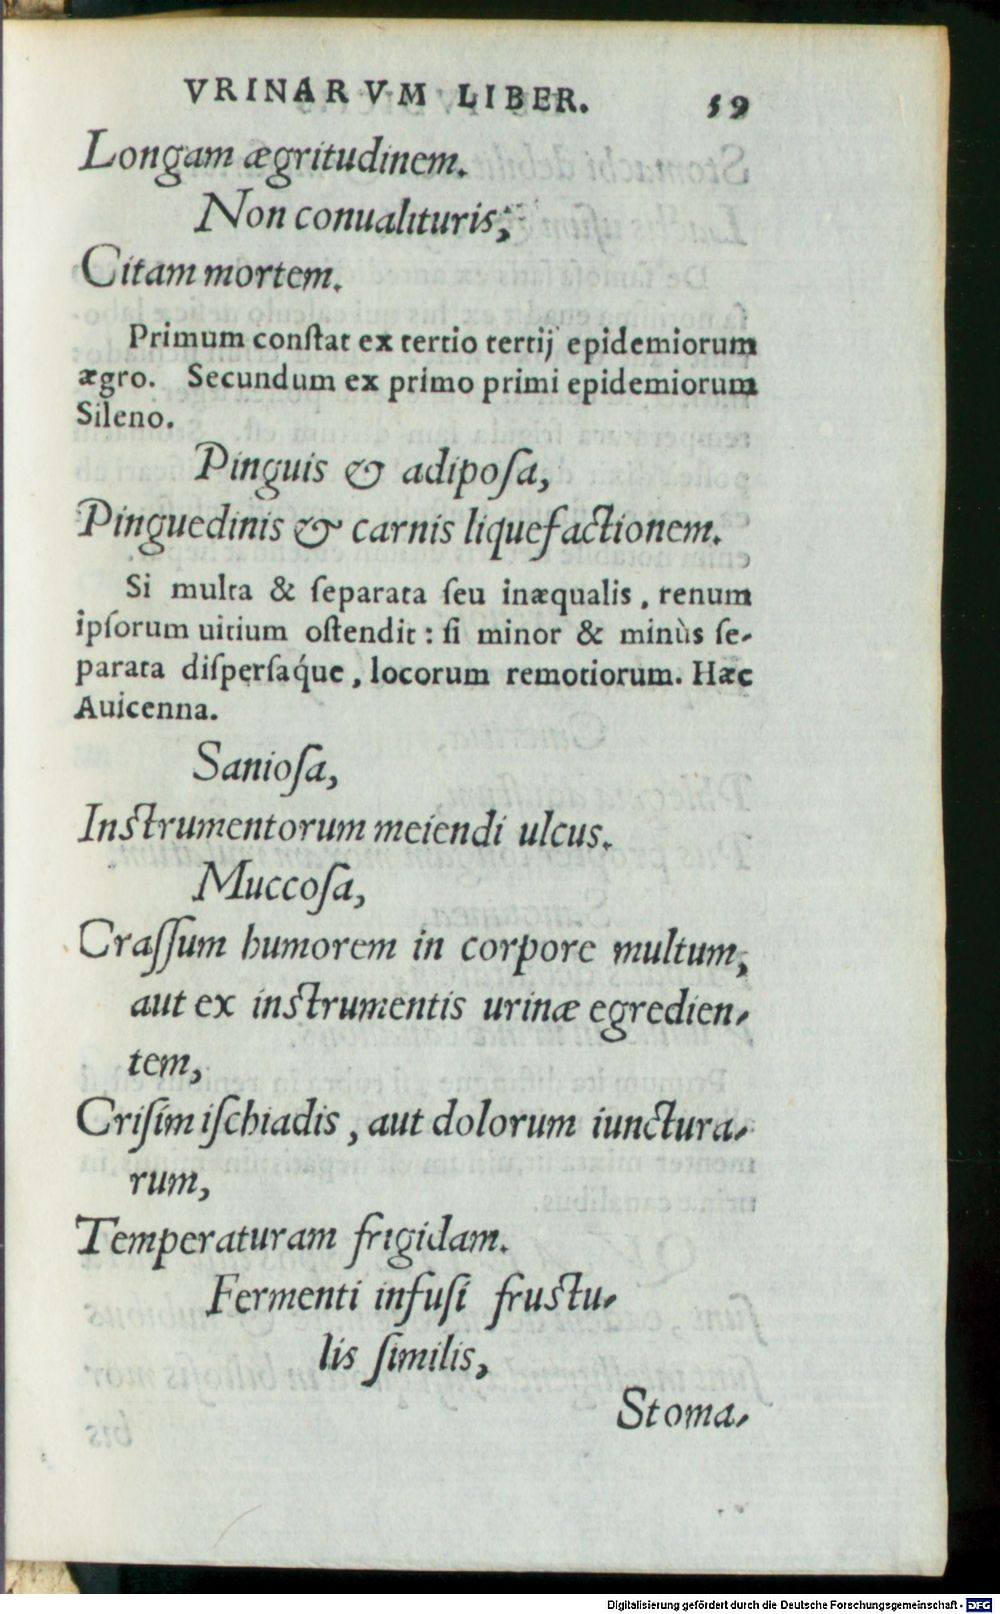 VRINARVM LIBER. 59
Longam ægritudinem.
Non conualituris,
Citam mortem.
Primum conſtat ex tertio tertij epidemiorum
ægro. Secundum ex primo primi epidemiorum
Sileno.
Pinguis & adipoſa,
Pinguedinis & carnis liquefactionem.
Si multa & ſeparata ſeu inæqualis, renum
ipſorum uitium oſtendit: ſi minor & minùs ſe-
parata diſperſaq́ue, locorum remotiorum. Hæc
Auicenna.
Sanioſa,
Inſtrumentorum meiendi ulcus.
Muccoſa,
Craſſum humorem in corpore multum,
aut ex inſtrumentis urinæ egredien-
tem,
Criſim iſchiadis, aut dolorum iunctura-
rum,
Temperaturam frigidam.
Fermenti infuſi fruſtu-
lis ſimilis,
Stoma-
Digitalisierung gefördert durch die Deutsche Forschungsgemeinschaft - DFG